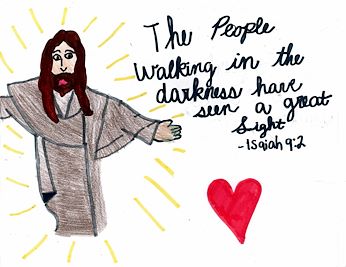 The People
Walking in the
darkness have
seen a great
Light
-Isaiah 9:2